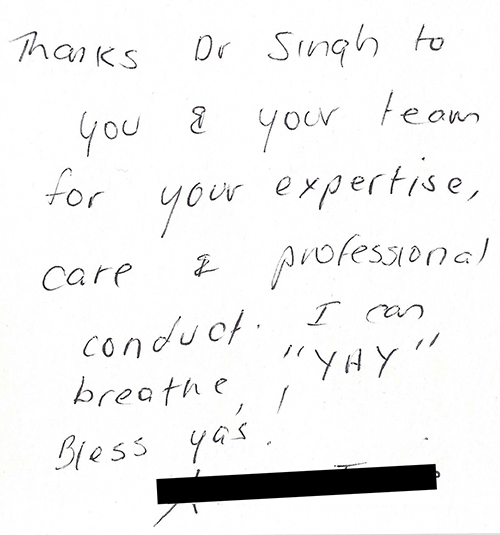 Thanks Dr Singh to
you & your team
for your expertise,
care & professional
conduct. I can
breathe, "YAY"!
Bless yas.